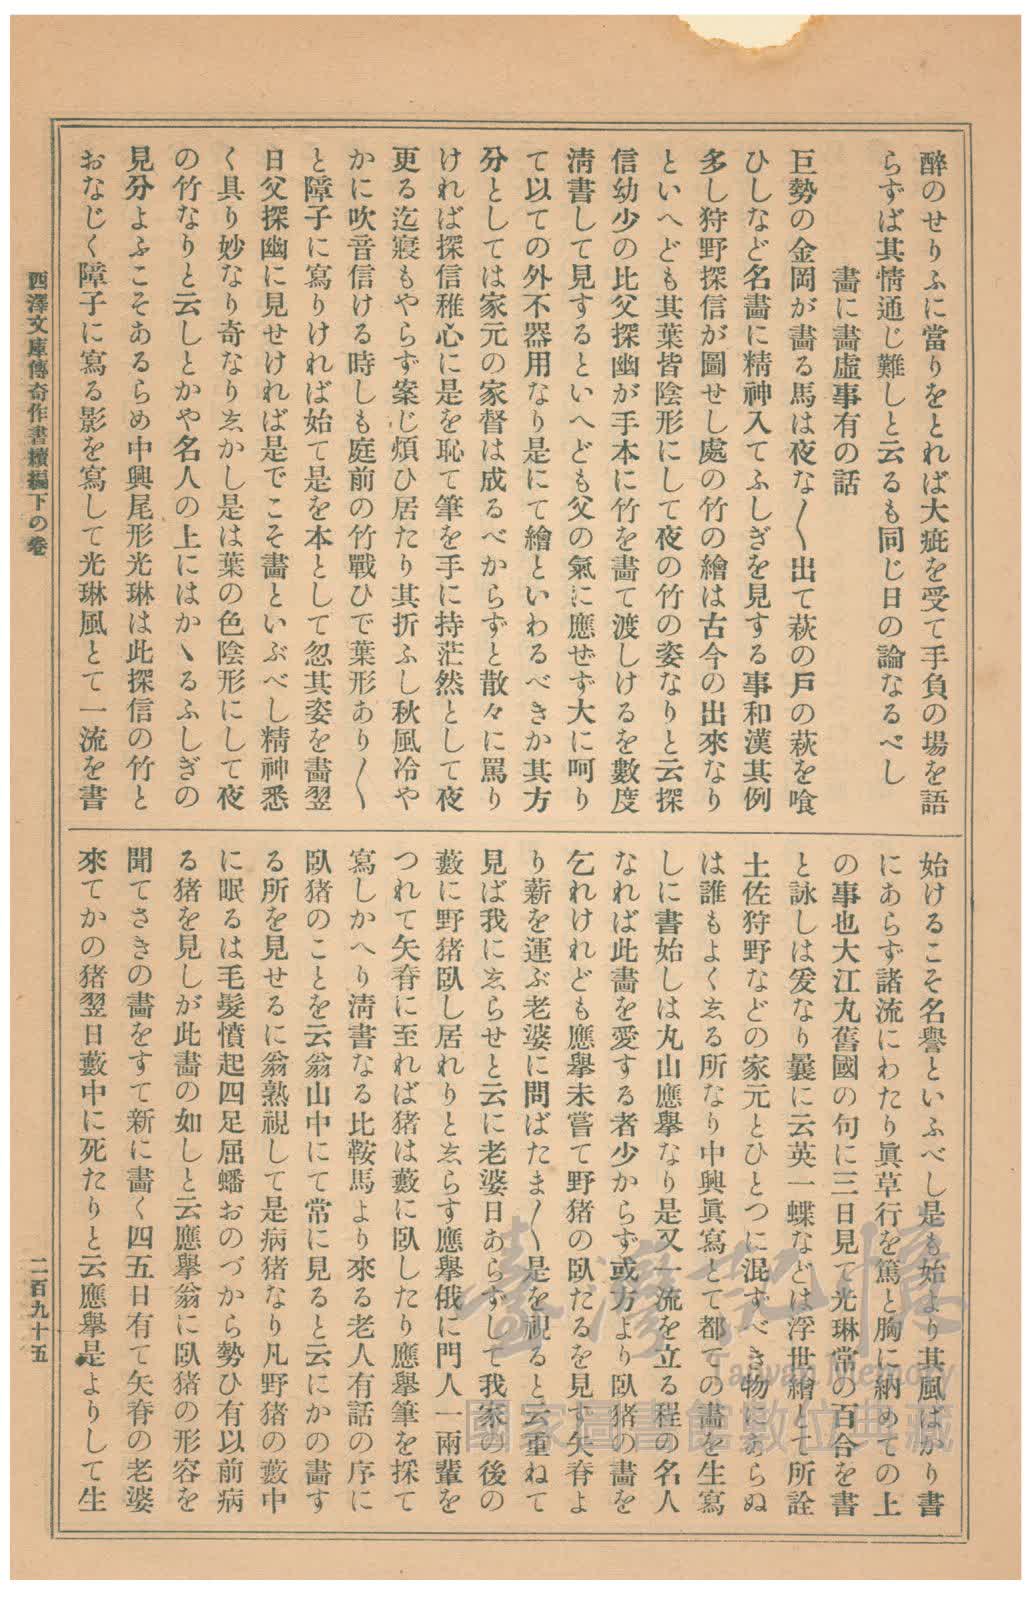 醉のせりふに當りをとれば大疵を受て手負の場を語
らずば其情通じ難しと云るも同じ日の論なるべし
畫に畫虛事有の話
巨勢の金岡が畫る馬は夜な〳〵出て萩の戶の萩を喰
ひしなど名畫に精神入てふしぎを見する事和漢其例
多し狩野探信が圖せし處の竹の繪は古今の出來なり
といへども其葉皆陰形にして夜の竹の姿なりと云探
信幼少の比父探幽が手本に竹を畫て渡しけるを數度
淸書して見するといへども父の氣に應ぜず大に呵り
て以ての外不器用なり是にて繪といわるべきか其方
分としては家元の家督は成るべからずと散々に罵り
ければ探信稚心に是を恥て筆を手に持茫然として夜
更る迄寢もやらず案じ煩ひ居たり其折ふし秋風冷や
かに吹音信ける時しも庭前の竹戰ひで葉形あり〳〵
と障子に寫りければ始て是を本として忽其姿を畫翌
日父探幽に見せければ是でこそ畫といふべし精神悉
く具り妙なり奇なりゑかし是は葉の色陰形にして夜
の竹なりと云しとかや名人の上にはかゝるふしぎの
見分よふこそあるらめ中興尾形光琳は此探信の竹と
おなじく障子に寫る影を寫して光琳風とて一流を書
始けるこそ名譽といふべし是も始より其風ばかり書
にあらず諸流にわたり眞草行を篤と胸に納めての上
の事也大江丸舊國の句に三日見て光琳常の百合を書
と詠しは爰なり曩に云英一蝶などは浮世繪とて所詮
土佐狩野などの家元とひとつに混ずべき物にあらぬ
は誰もよくゑる所なり中興眞寫とて都ての畫を生寫
しに書始しは丸山應擧なり是又一流を立る程の名人
なれば此畫を愛する者少からず或方より臥猪の畫を
乞れけれども應擧未嘗て野猪の臥たるを見ず矢脊よ
り薪を運ぶ老婆に問ばたま〳〵是を視ると云重ねて
見ば我にゑらせと云に老婆日あらずして我家の後の
藪に野猪臥し居れりとゑらす應擧俄に門人一兩輩を
つれて矢脊に至れば猪は藪に臥したり應擧筆を採て
寫しかへり淸書なる比鞍馬より來る老人有話の序に
臥猪のことを云翁山中にて常に見ると云にかの畫す
る所を見せるに翁熟視して是病猪なり凡野猪の藪中
に眠るは毛髮憤起四足屈蟠おのづから勢ひ有以前病
る猪を見しが此畫の如しと云應擧翁に臥猪の形容を
聞てさきの畫をすて新に畫く四五日有て矢脊の老婆
來てかの猪翌日藪中に死たりと云應擧是よりして生
西澤文庫傳奇作書續編下の卷
二百九十五
臺灣記憶
Taiwan Memory
國家圖書館數位典藏